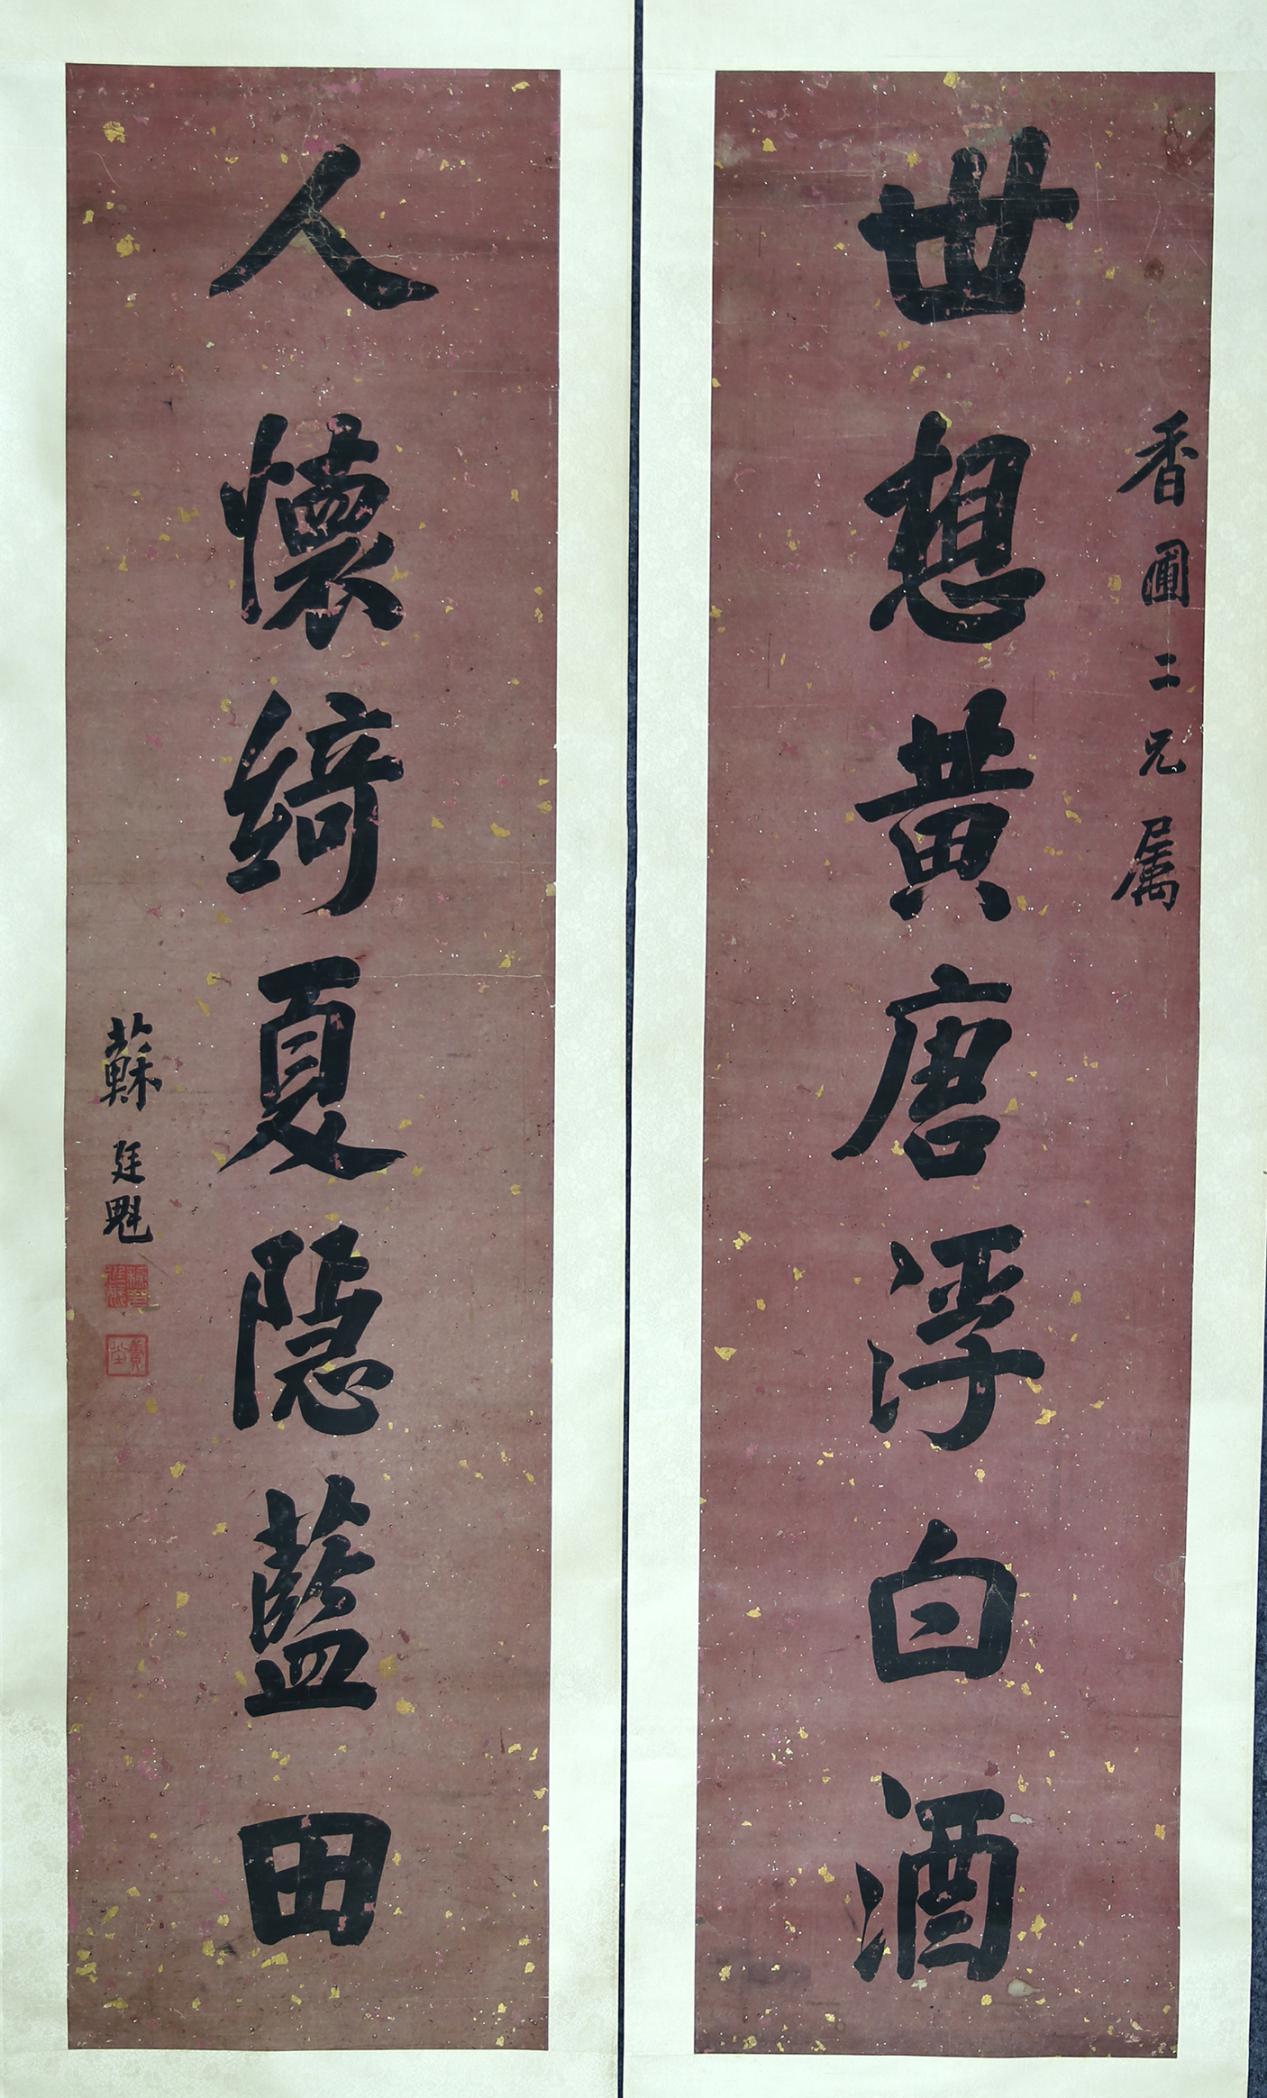 香圃二兄属
世想黄唐浮白酒
人懷綺夏隐藍田
蘇廷魁